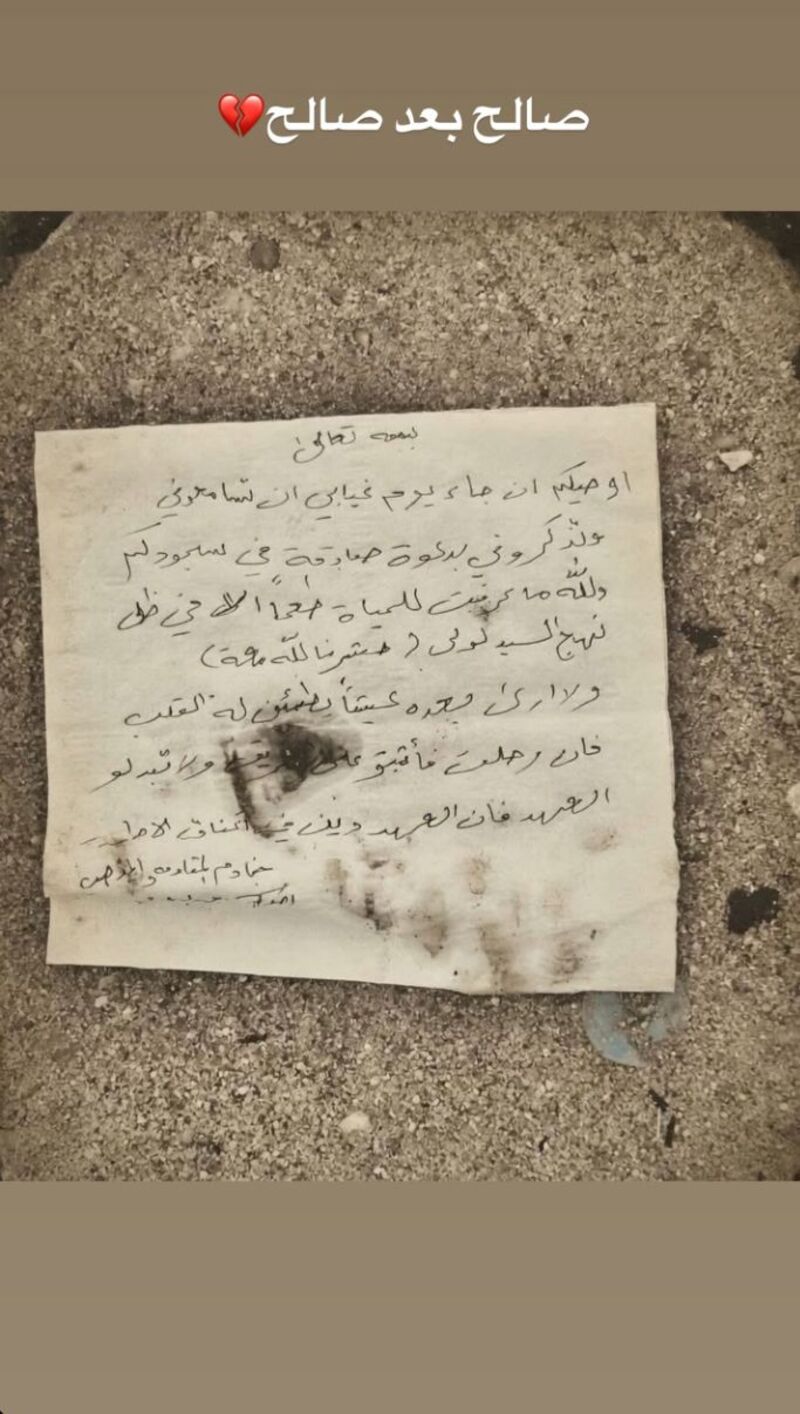 صالح بعد صالح💔
بسمه تعالى
اوصيكم ان جاء يوم غيابي ان تسامحوني
وتذكروني بدعوة صادقة في سجودكم
ولله ما عرفت للحياة طعماً الا في ظل
نهج السيد لولي (حشرنا لله معة)
ولا ارى بعده عيشاً يطمئن له القلب
فان رحلت فأثبتو على ولا تبدلو
العهد فان العهد دين في اعناق الاحرار
خادم المقاومه